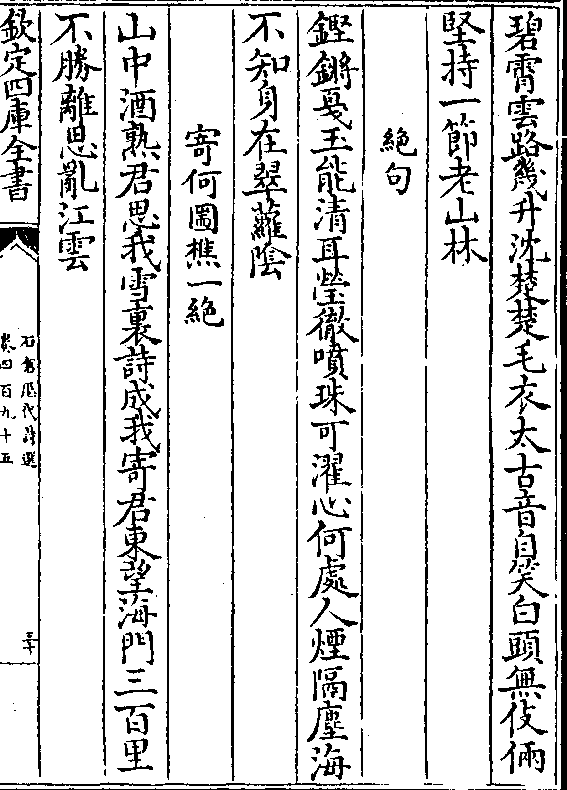 碧霄雲路幾升沈楚楚毛衣太古音自笑白頭無伎倆
堅持一節老山林
絶句
鏗鏘戛玉能清耳瑩徹噴珠可濯心何處人煙隔塵海
不知身在翠蘿陰
寄何圖樵一絶
山中酒熟君思我雪裏詩成我寄君東望海門三百里
不勝離思亂江雲
欽定四庫全書
石倉歴代詩選
卷四百九十五
三十